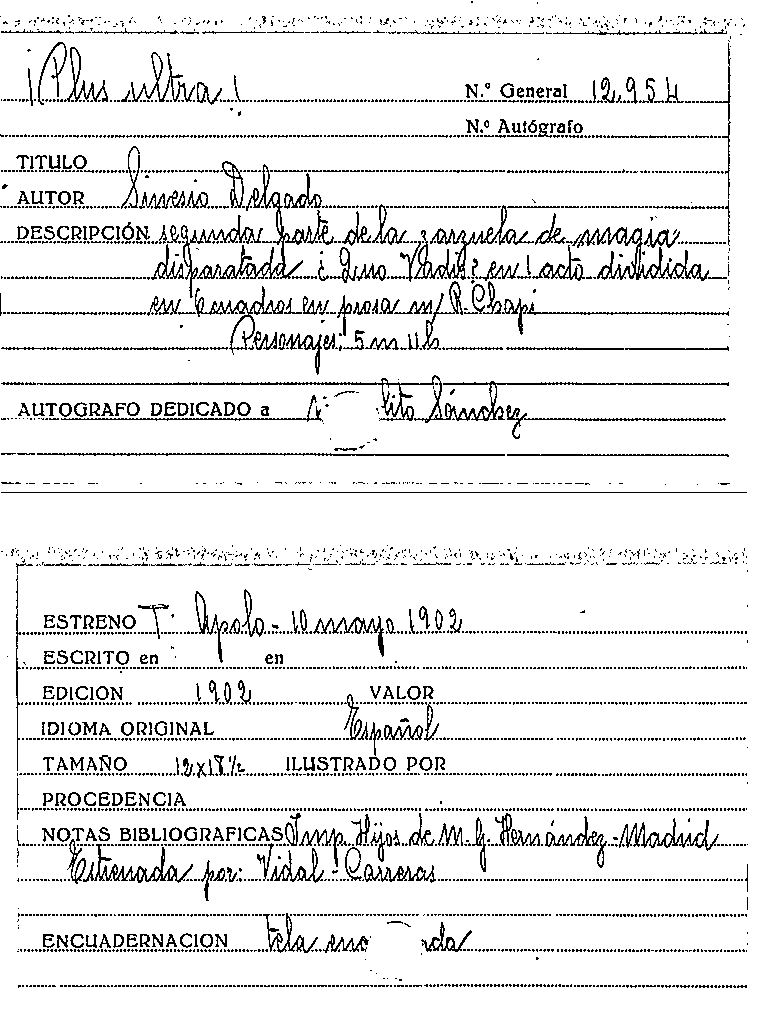 ¡Plus ultra!
N.º General 12.954
N.º Autógrafo
TITULO
AUTOR Sinesio Delgado
DESCRIPCIÓN segunda parte de la zarzuela de magia
disparatada ¿Quo Vadis? en 1 acto dividida
en 6 cuadros en prosa m/ R. Chapí
Personajes: 5 m 11 h
AUTOGRAFO DEDICADO a lito Sánchez
ESTRENO T. Apolo - 10 mayo 1902
ESCRITO en en
EDICION 1902 VALOR
IDIOMA ORIGINAL Español
TAMAÑO 12x18½ ILUSTRADO POR
PROCEDENCIA
NOTAS BIBLIOGRAFICAS Imp. Hijos de M. G. Hernández - Madrid
Estrenada por: Vidal - Carreras
ENCUADERNACION tela